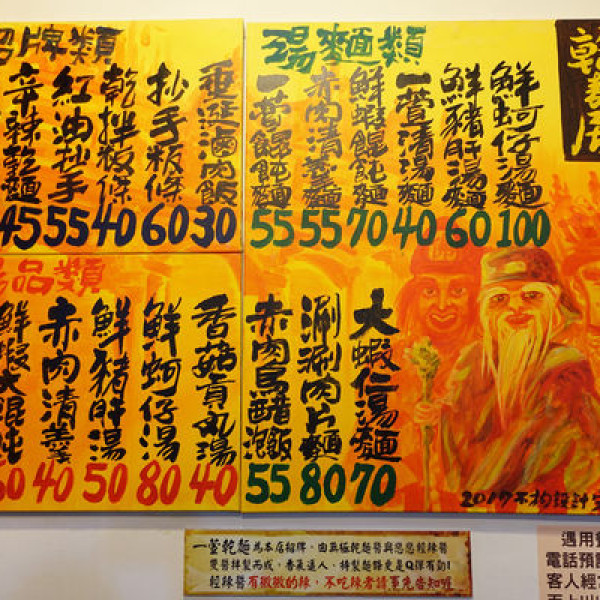 招牌類
辛辣乾麵 45
紅油抄手 55
乾拌粄條 40
抄手粄條 60
滷肉飯 30
湯麵類
一萱餛飩麵 55
赤肉清羹麵 55
鮮蝦餛飩麵 70
一萱清湯麵 40
鮮豬肝湯麵 60
鮮蚵仔湯麵 100
赤肉烏醋泡飯 55
涮涮肉片麵 80
大蝦仁湯麵 70
品類
鮮蝦大餛飩
赤肉清羹 40
鮮豬肝湯 50
鮮蚵仔湯 80
香菇貢丸湯 40
2017不拘設計
一萱乾麵為本店招牌、由無極乾麵醬與思思輕辣醬
雙醬拌製而成、香氣逼人、特製麵條更是Q彈有勁!
輕辣醬有微微的辣，不吃辣者請事先告知喔
遇用
電話預
客人